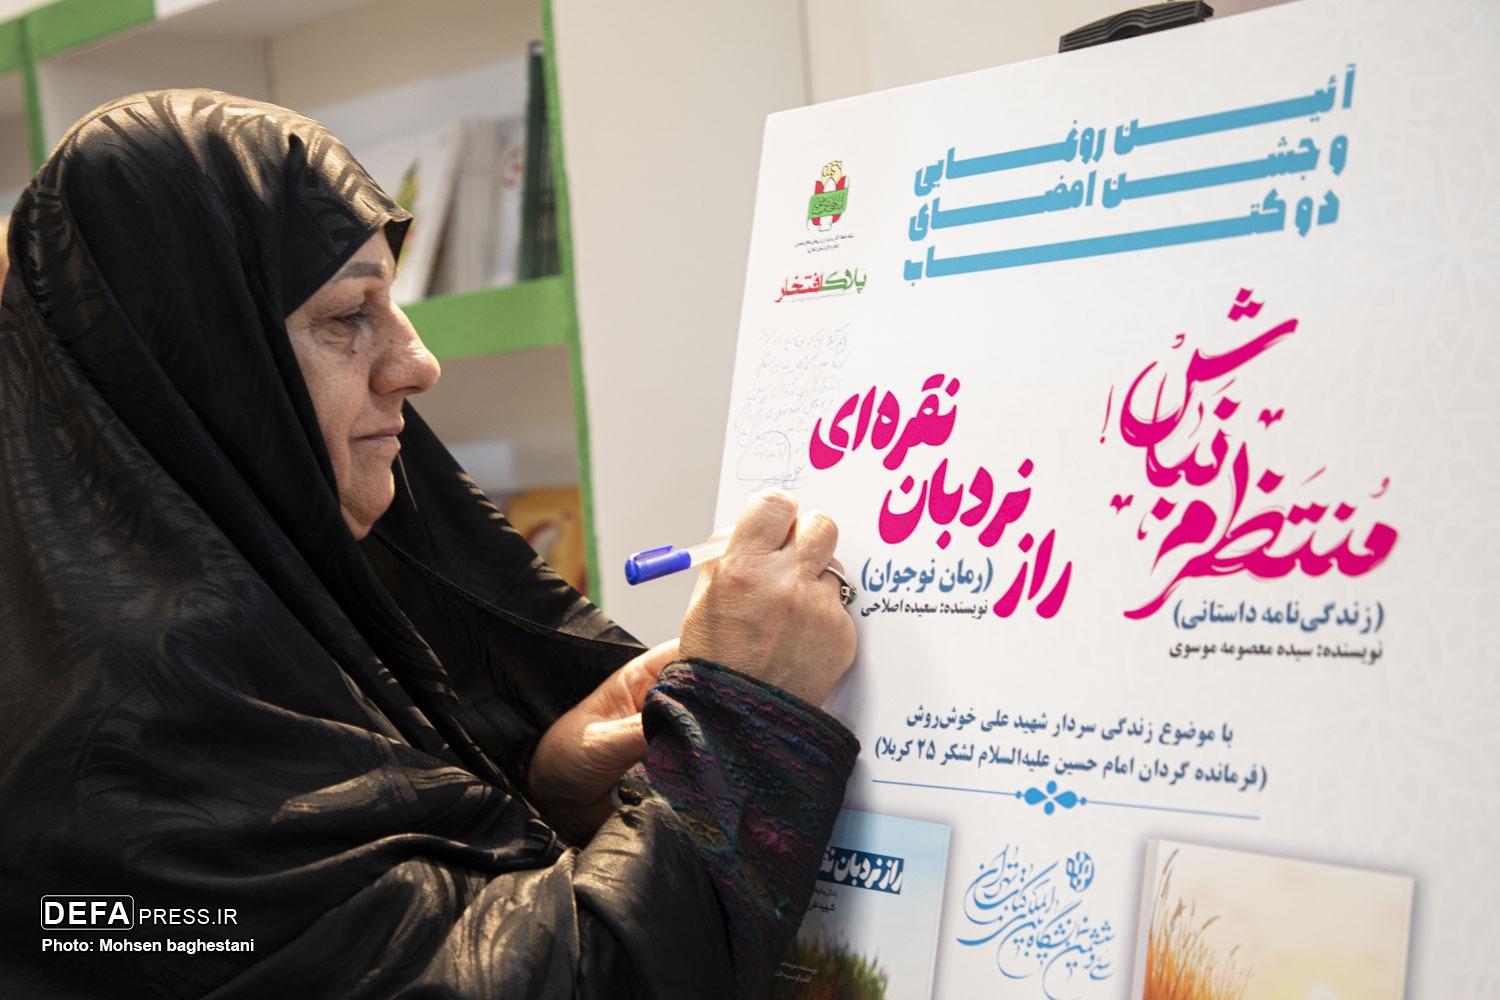 آئین رونمایی
و جشن امضای
دو کتاب
پلاک افتخار
منتظرم نباش!
(زندگی‌نامه داستانی)
نویسنده: سیده معصومه موسوی
راز نردبان نقره‌ای
(رمان نوجوان)
نویسنده: سعیده اصلاحی
با موضوع زندگی سردار شهید علی خوش‌روش
(فرمانده گردان امام حسین علیه‌السلام لشکر ۲۵ کربلا)
راز نردبان
سی و ششمین نمایشگاه بین المللی کتاب تهران
DEFAPRESS.IR
Photo: Mohsen baghestani